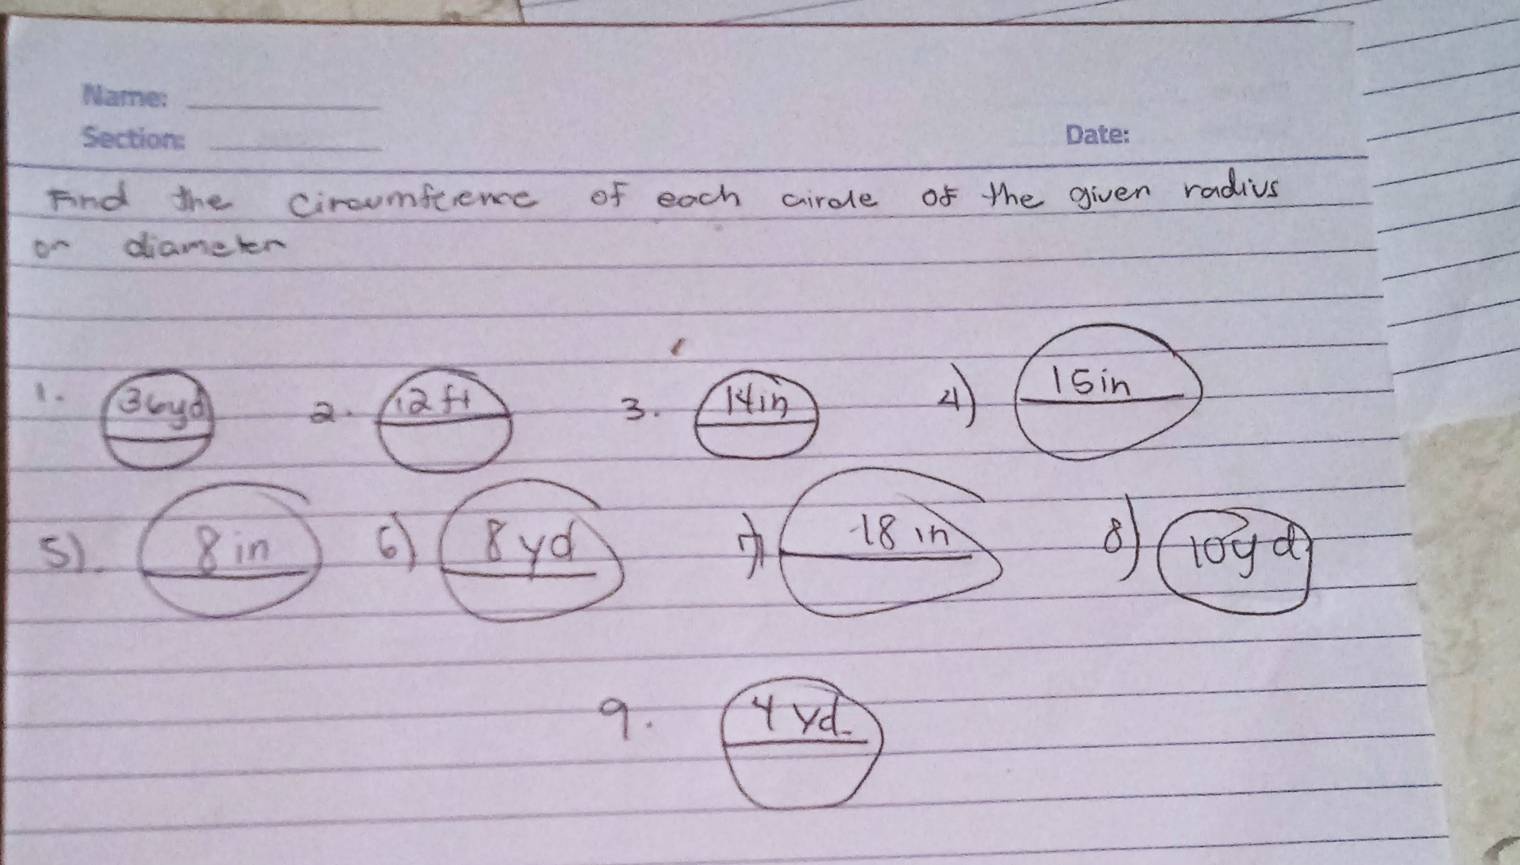 Name:
Section:
Date:
Find the circumference of each circle of the given radius
or diameter
1. 36yd 2. 12 ft 3. 14in 4) 15in
5). 8 in 6) 8 yd 7) 18 in 8) 10yd
9. 4 yd.